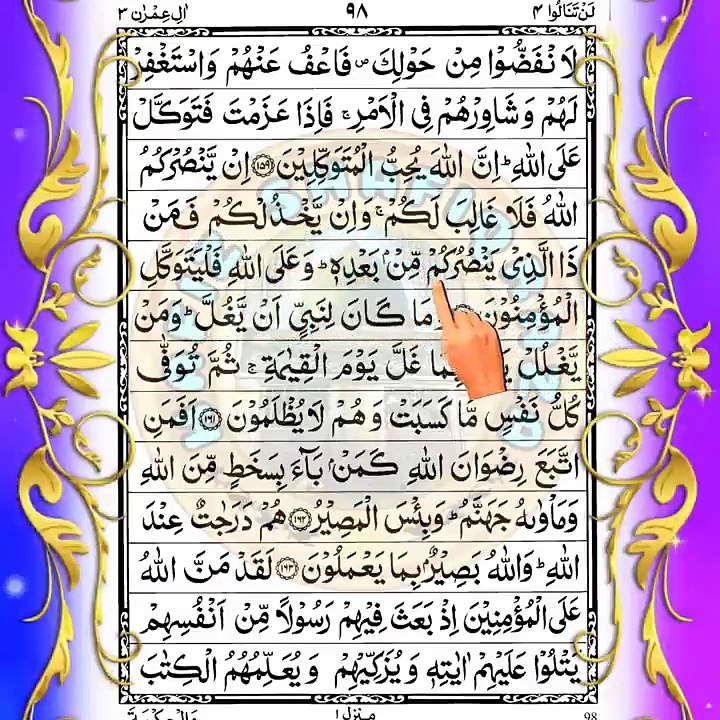 لَنْ تَنَالُوا ۴ ۹۸ اٰلِ عِمْرٰن ۳
لَا نْفَضُّوْا مِنْ حَوْلِكَ ۪ فَاعْفُ عَنْهُمْ وَاسْتَغْفِرْ
لَهُمْ وَشَاوِرْهُمْ فِى الْاَمْرِ ۚ فَاِذَا عَزَمْتَ فَتَوَكَّلْ
عَلَى اللّٰهِ ؕ اِنَّ اللّٰهَ يُحِبُّ الْمُتَوَكِّلِيْنَ ﴿۱۵۹﴾ اِنْ يَّنْصُرْكُمُ
اللّٰهُ فَلَا غَالِبَ لَكُمْ ۚ وَاِنْ يَّخْذُلْكُمْ فَمَنْ
ذَا الَّذِىْ يَنْصُرُكُمْ مِّنْۢ بَعْدِهٖ ؕ وَعَلَى اللّٰهِ فَلْيَتَوَكَّلِ
الْمُؤْمِنُوْنَ مَا كَانَ لِنَبِىٍّ اَنْ يَّغُلَّ ؕ وَمَنْ
يَّغْلُلْ بِمَا غَلَّ يَوْمَ الْقِيٰمَةِ ۚ ثُمَّ تُوَفّٰى
كُلُّ نَفْسٍ مَّا كَسَبَتْ وَهُمْ لَا يُظْلَمُوْنَ ﴿۱۶۱﴾ اَفَمَنِ
اتَّبَعَ رِضْوَانَ اللّٰهِ كَمَنْۢ بَآءَ بِسَخَطٍ مِّنَ اللّٰهِ
وَمَاْوٰىهُ جَهَنَّمُ ؕ وَبِئْسَ الْمَصِيْرُ ﴿۱۶۲﴾ هُمْ دَرَجٰتٌ عِنْدَ
اللّٰهِ ؕ وَاللّٰهُ بَصِيْرٌۢ بِمَا يَعْمَلُوْنَ ﴿۱۶۳﴾ لَقَدْ مَنَّ اللّٰهُ
عَلَى الْمُؤْمِنِيْنَ اِذْ بَعَثَ فِيْهِمْ رَسُوْلًا مِّنْ اَنْفُسِهِمْ
يَتْلُوْا عَلَيْهِمْ اٰيٰتِهٖ وَيُزَكِّيْهِمْ وَيُعَلِّمُهُمُ الْكِتٰبَ
منزل ۱